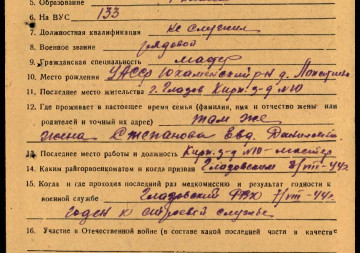 5. Образование
6. На ВУС 133
7. Должностная квалификация не служил
8. Военное звание рядовой
9. Гражданская специальность
10. Место рождения УАССР р-н д.
11. Последнее место жительства г. Глазов Кирп. з-д №10
12. Где проживает в настоящее время семья (фамилия, имя и отчество жены или
родителей и точный их адрес) там же
жена Степанова Евд.
13. Последнее место работы и должность Кирп. з-д №10 - мастер
14. Каким райгорвоенкоматом и когда призван Глазовским 8/VIII-44г
15. Когда и где проходил последний раз медкомиссию и результат годности к
военной службе Глазовский 7/VIII-44г
годен к строевой службе
16. Участие в Отечественной войне (в составе какой последней части и в качестве